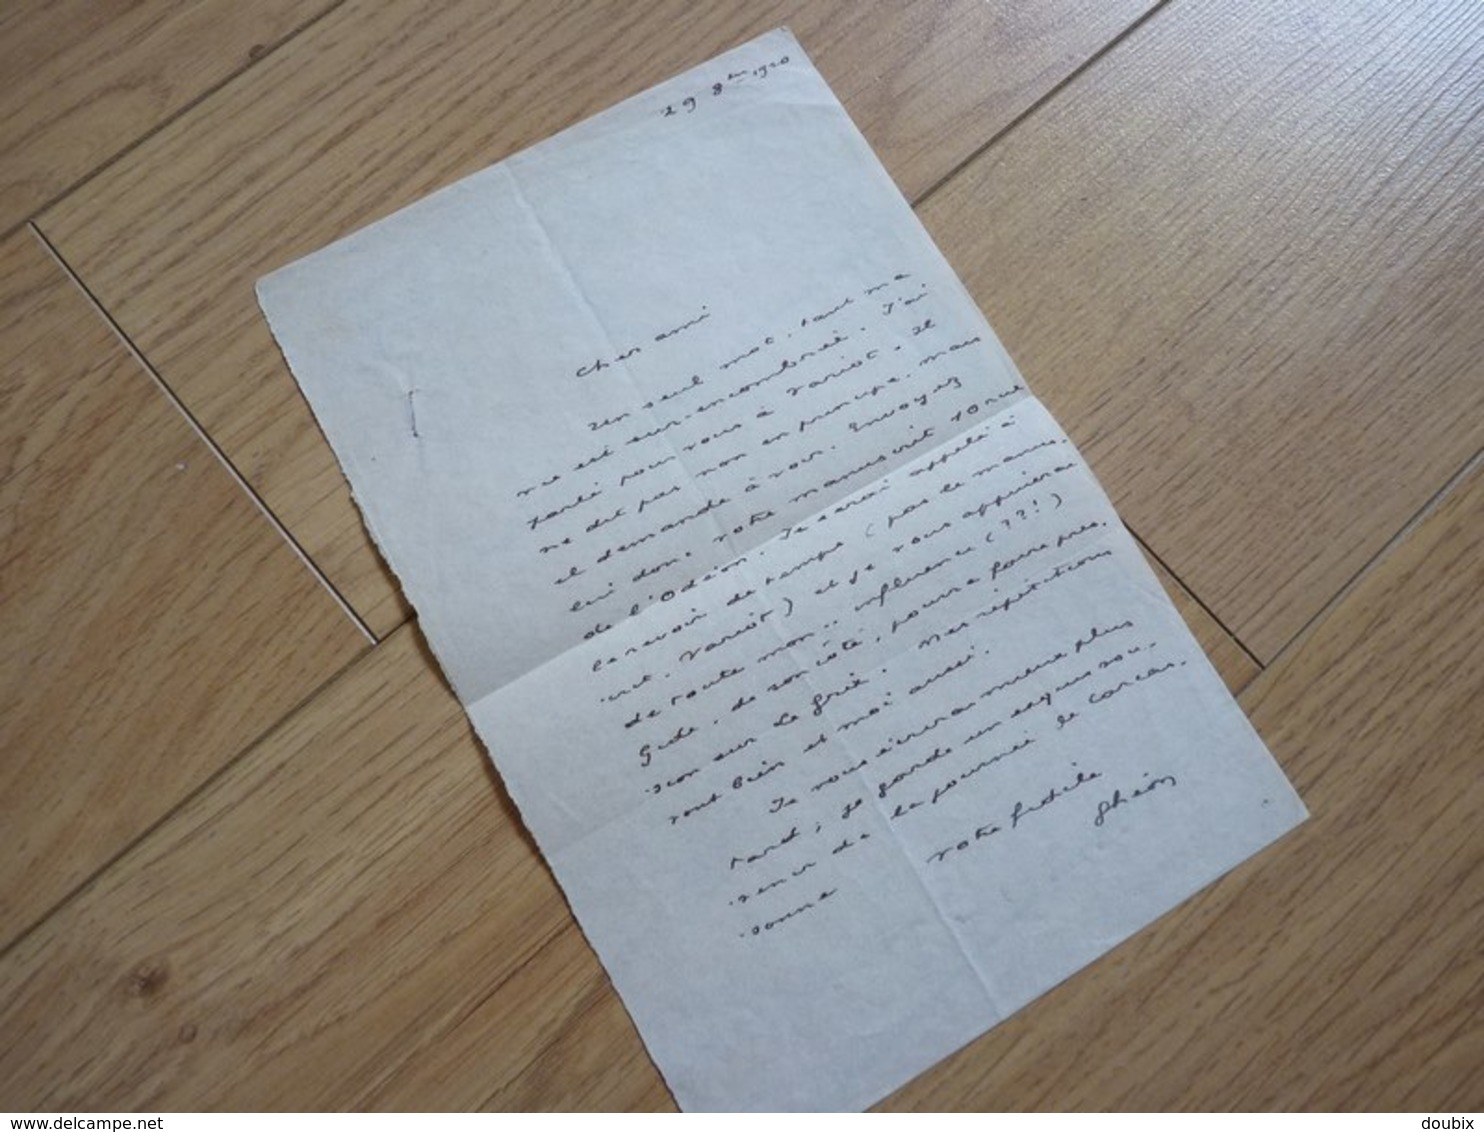 29 8bre 1920
Cher ami
un seul mot, tant ma
vie est sur-encombrée. J'ai
parlé pour vous à Variot. Il
ne dit pas non en principe, mais
il demande à voir. Envoyez
lui donc votre manuscrit 10 rue
de l'Odéon. Je serai appelé à
le revoir de temps (pas le manus-
crit, Variot) et je vous appuierai
de toute mon.. influence (??!)
Gide, de son côté, pourra faire pres-
sion sur Mes répétitions
vont bien et moi aussi.
Je vous écrirai mieux plus
tard; je garde un exquis sou-
venir de la journée de Carcas-
sonne
votre fidèle
Ghéon
© delcampe.net
doubix